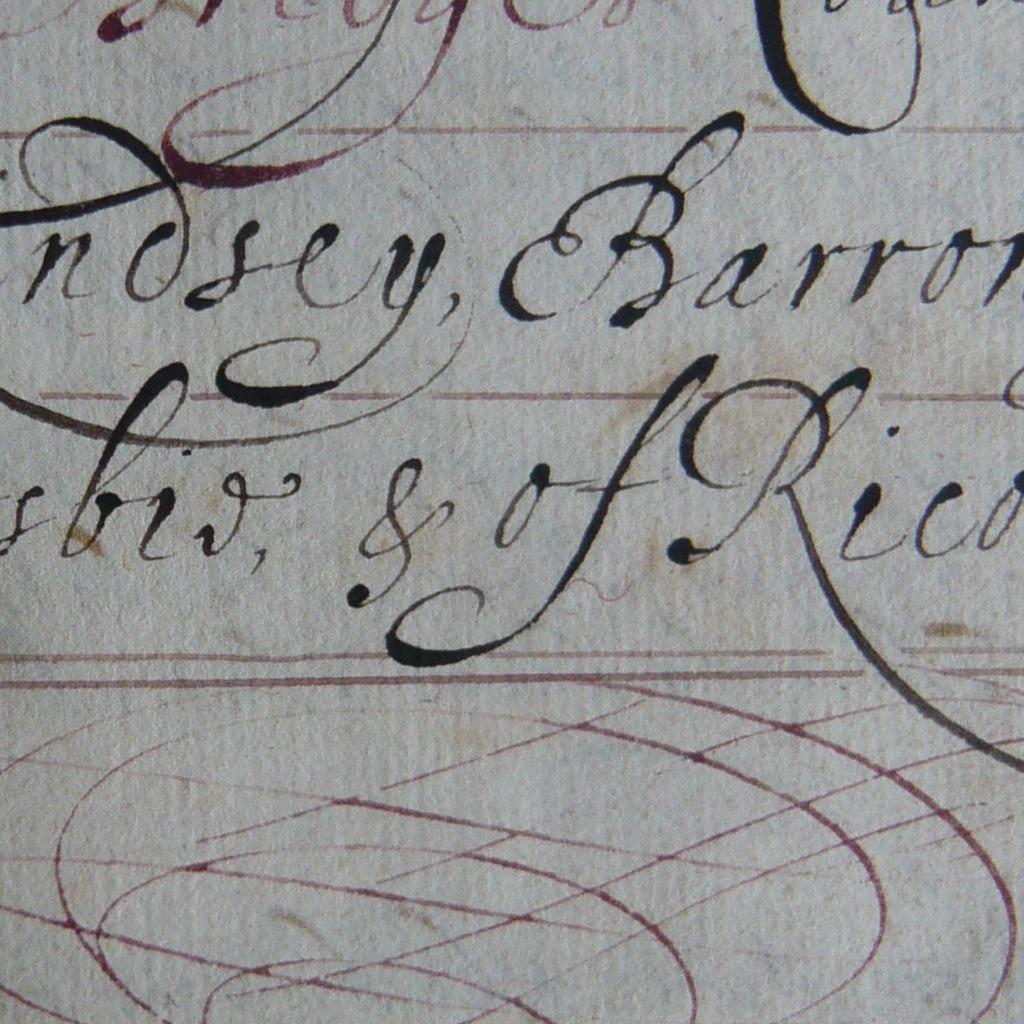 indsey, Barron
sbié, & of Rico